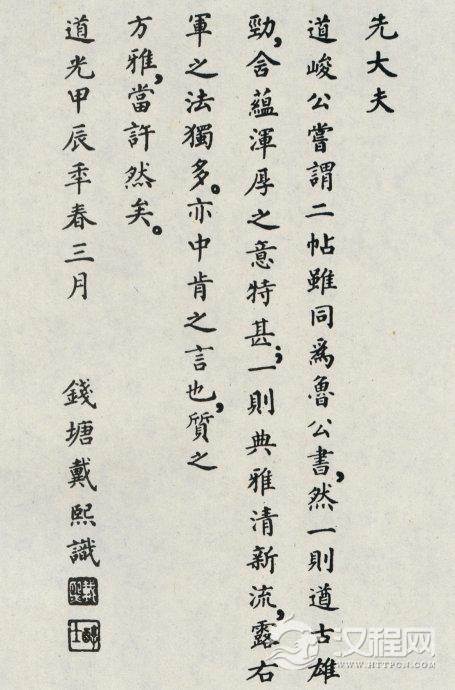 先大夫
道峻公嘗謂二帖雖同爲魯公書，然一則遒古雄
勁，含蘊渾厚之意特甚；一則典雅清新，流露右
軍之法獨多。亦中肯之言也，質之
方雅，當許然矣。
道光甲辰季春三月　錢塘戴熙識
汉程网
WWW.HTTPCN.COM